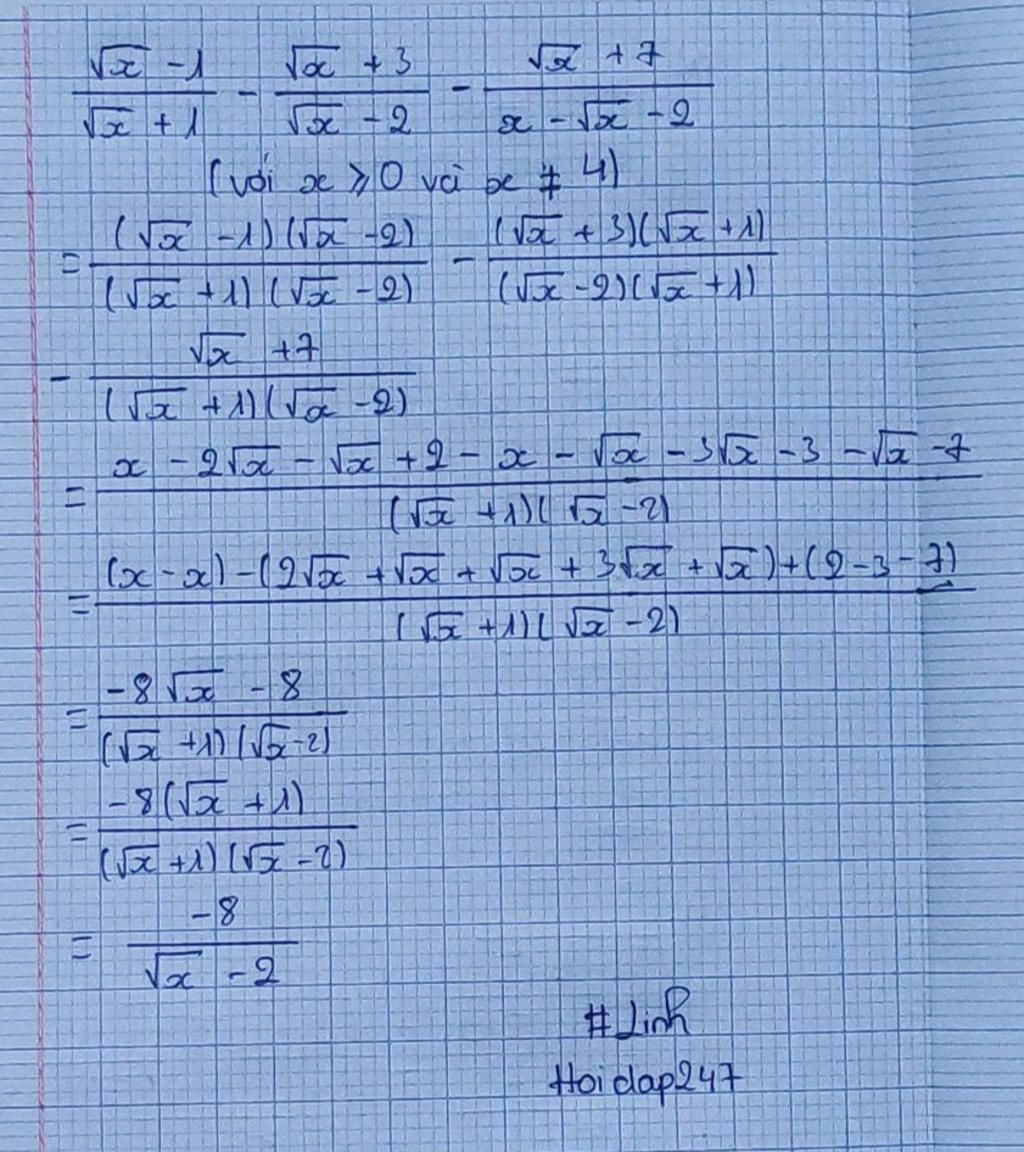 (√x - 1)/(√x + 1) - (√x + 3)/(√x - 2) - (√x + 7)/(x - √x - 2)
(với x ≥ 0 và x ≠ 4)
= ((√x - 1)(√x - 2))/((√x + 1)(√x - 2)) - ((√x + 3)(√x + 1))/((√x - 2)(√x + 1))
- (√x + 7)/((√x + 1)(√x - 2))
= (x - 2√x - √x + 2 - x - √x - 3√x - 3 - √x - 7)/((√x + 1)(√x - 2))
= ((x - x) - (2√x + √x + √x + 3√x + √x) + (2 - 3 - 7))/((√x + 1)(√x - 2))
= (-8√x - 8)/((√x + 1)(√x - 2))
= (-8(√x + 1))/((√x + 1)(√x - 2))
= (-8)/(√x - 2)
#Linh
Hoidap247